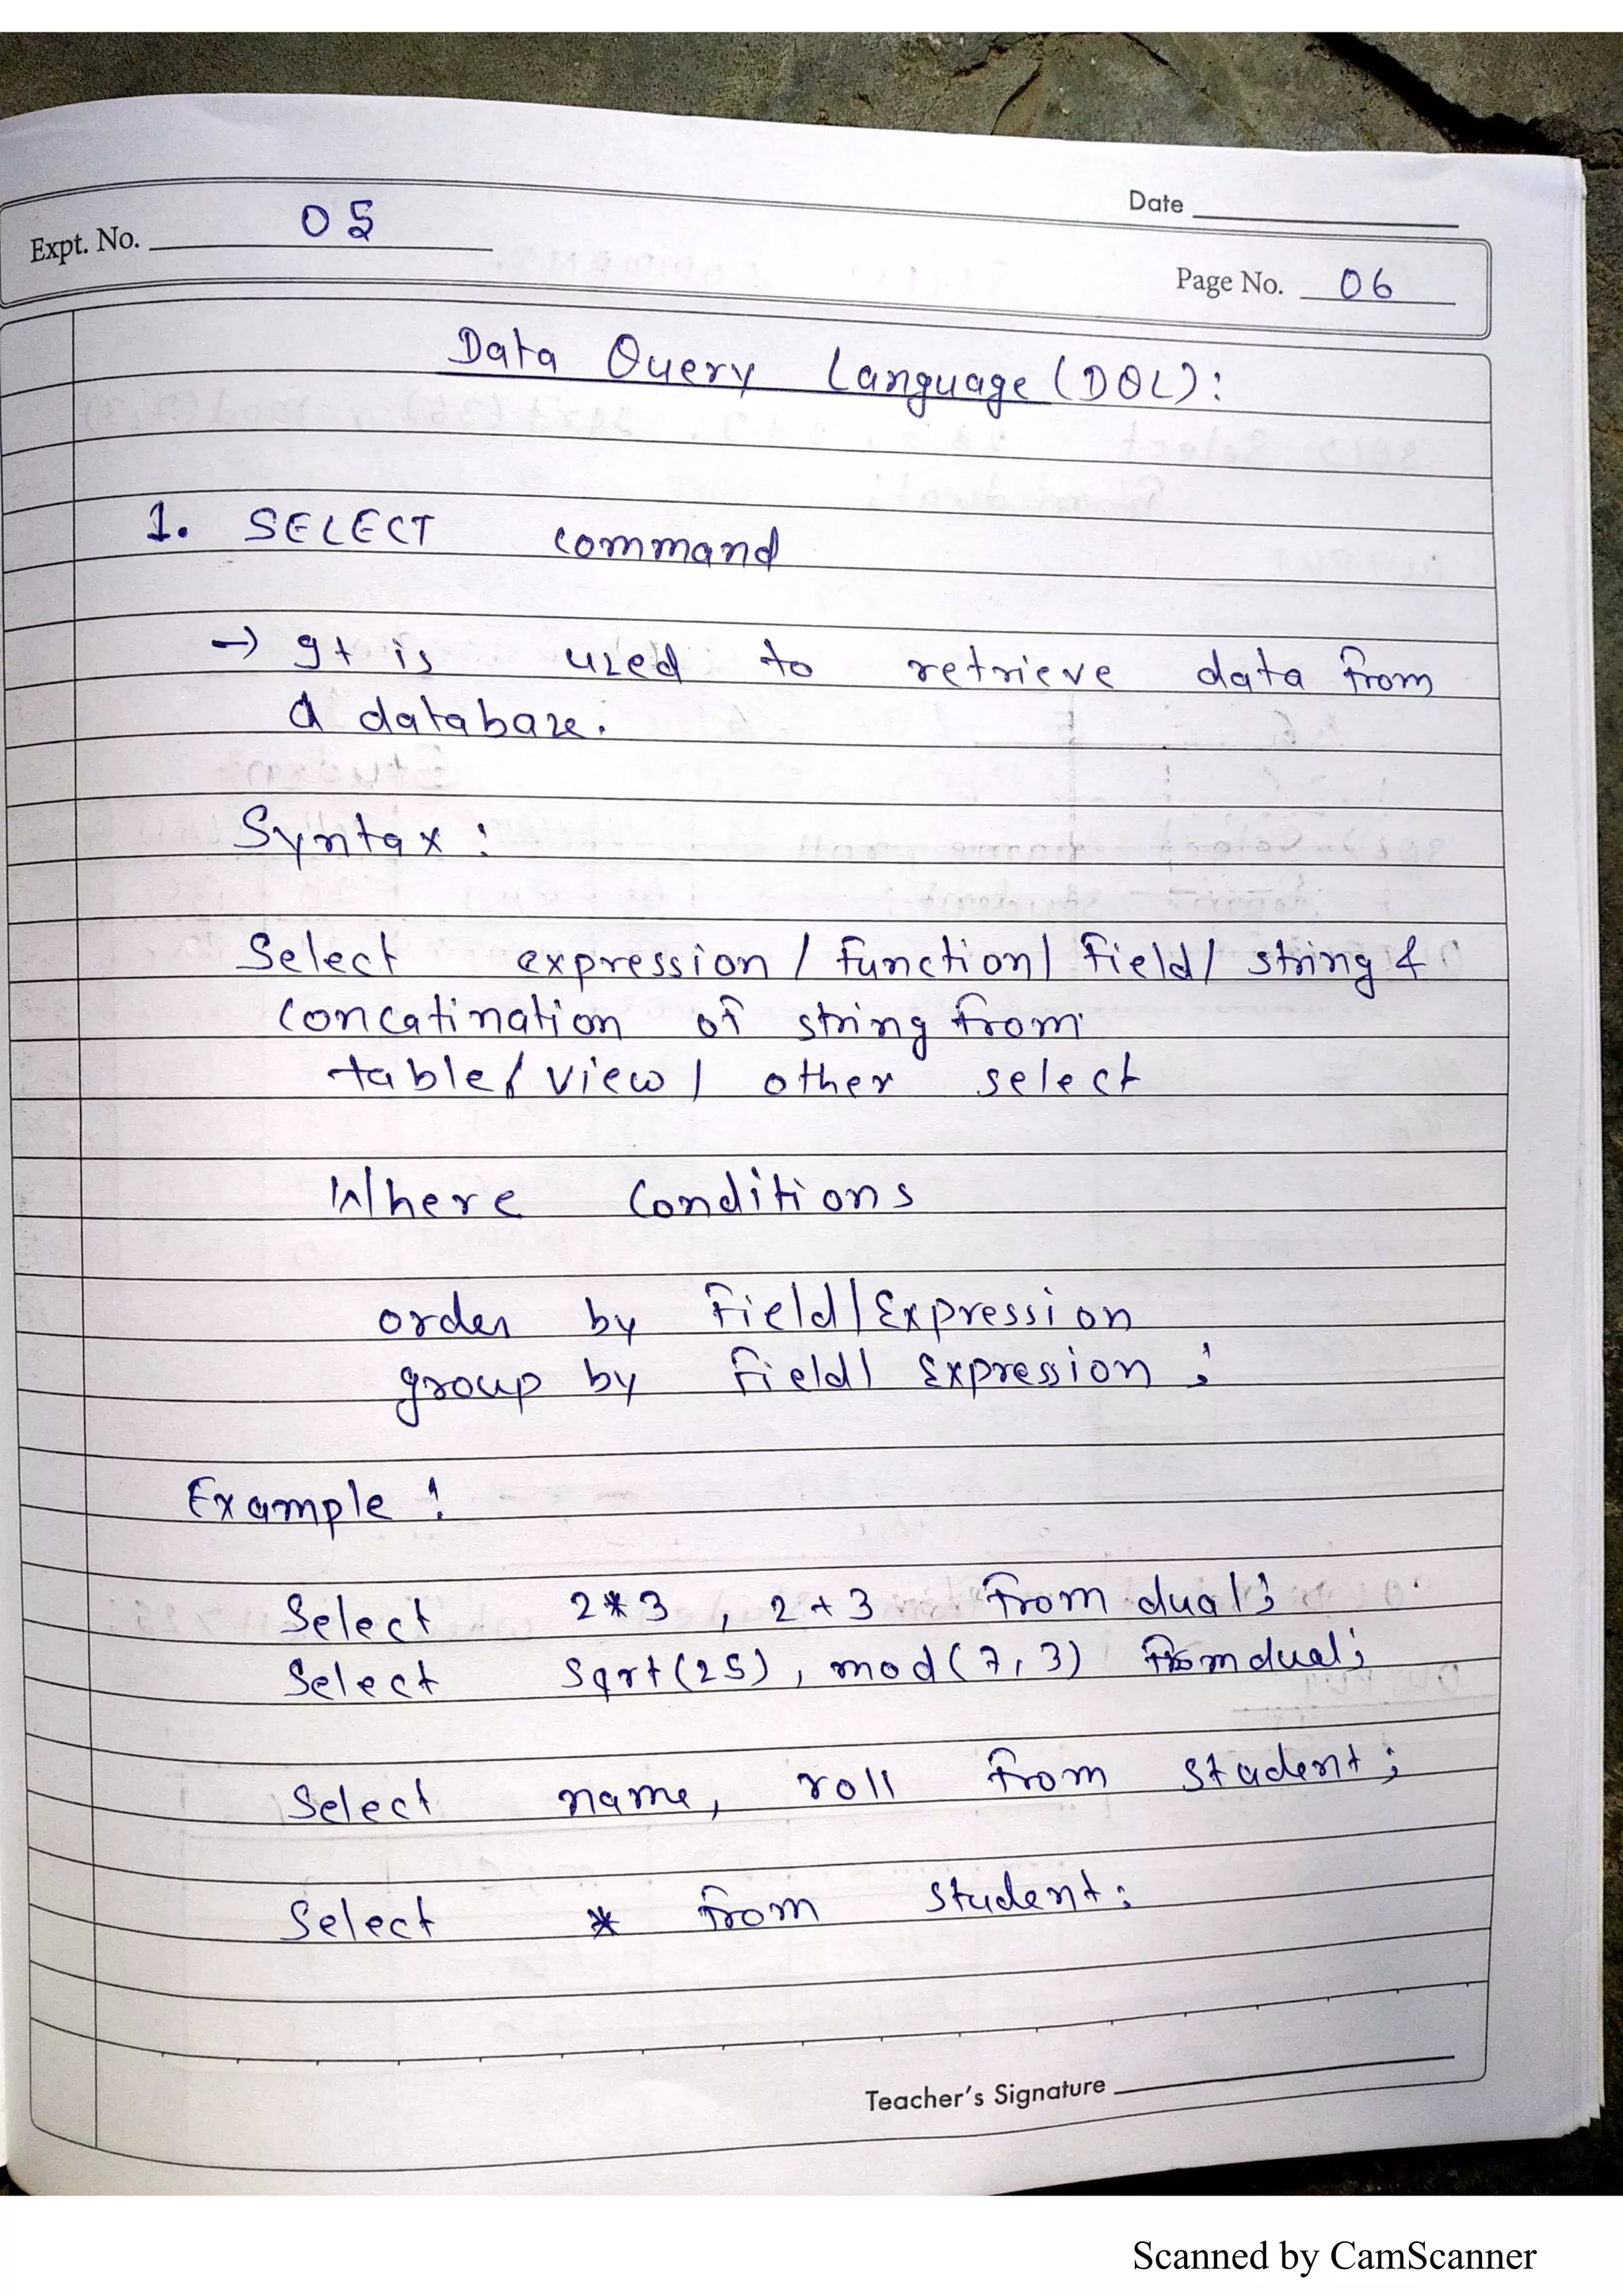 Date
Expt. No. 05
Page No. 06
Data Query Language (DQL):
1. SELECT command
→ It is used to retrieve data from
a database.
Syntax :
Select expression / function / field / string &
concatination of string from
table / view / other select
Where Conditions
order by field / Expression
group by field / Expression ;
Example :
Select 2*3 , 2+3 from dual;
Select sqrt(25) , mod(7,3) from dual;
Select name, roll from student ;
Select * from student;
Teacher's Signature
Scanned by CamScanner